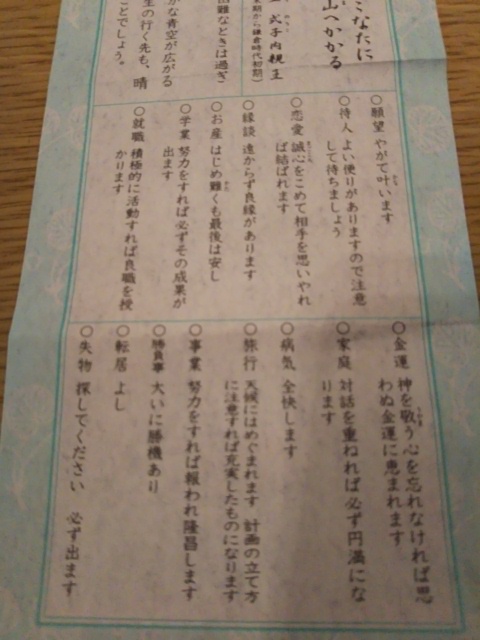 こなたに
山へかかる
式子内親王
期から鎌倉時代初期）
困難なときは過ぎ
かな青空が広がる
生の行く先も、晴
ことでしょう。
○願望 やがて叶います
○待人 よい便りがありますので注意
して待ちましょう
○恋愛 誠心をこめて相手を思いやれ
ば結ばれます
○縁談 遠からず良縁があります
○お産 はじめ難くも最後は安し
○学業 努力をすれば必ずその成果が
出ます
○就職 積極的に活動すれば良職を授
かります
○金運 神を敬う心を忘れなければ思
わぬ金運に恵まれます
○家庭 対話を重ねれば必ず円満にな
ります
○病気 全快します
○旅行 天候にはめぐまれます 計画の立て方
に注意すれば充実したものになります
○事業 努力をすれば報われ隆昌します
○勝負事 大いに勝機あり
○転居 よし
○失物 探してください 必ず出ます